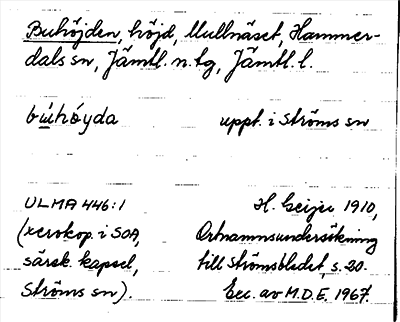 Buhöjden, höjd, Mullnäset, Hammer-
dals sn, Jämtl. n. tg, Jämtl. l.
bu̇hȯyda uppt. i Ströms sn
ULMA 446:1 H. Geijer 1910,
(xerokop. i SOA, Ortnamnsundersökning
särsk. kapsel, till Strömsbladet, s. 20.
Ströms sn). Exc. av M.D.E. 1967.